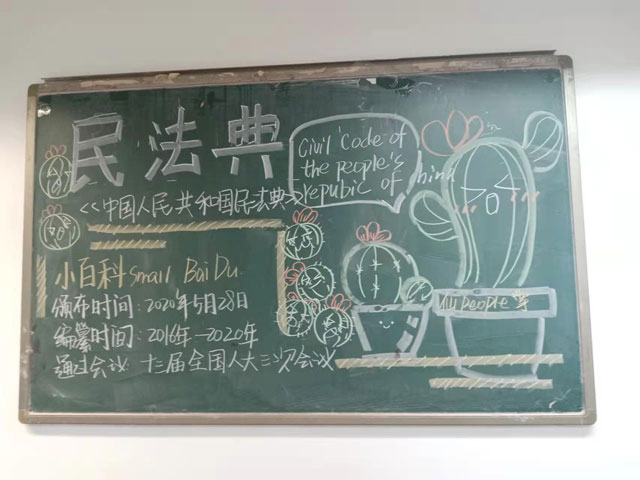 民法典
Civil Code of
the people's
repubic of hina
<<中国人民共和国民法典>>
小百科 small BaiDu.
颁布时间:2020年5月28日
编纂时间:2016年—2020年
通过会议:十三届全国人大三次会议
people